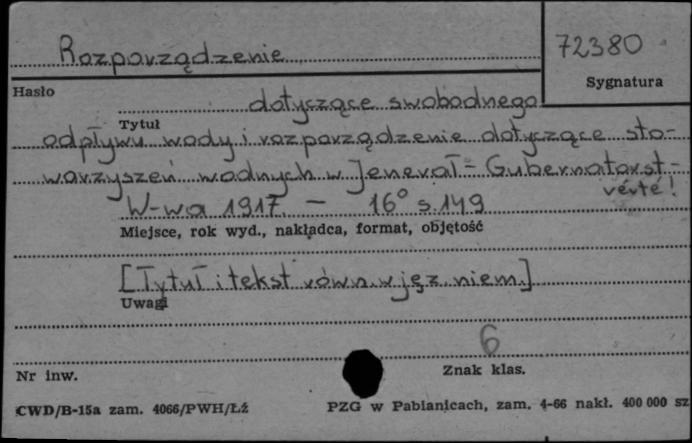 Rozporządzenie
72380
Sygnatura
Hasło
dotyczące swobodnego
Tytuł
odpływu wody i rozporządzenie dotyczące sto-
warzyszeń wodnych w Jenerał-Gubernatorst-
verte!
W-wa 1917. — 16° s. 149
Miejsce, rok wyd., nakładca, format, objętość
[Tytuł i tekst równ. w jęz. niem.]
Uwagi
6
Nr inw.
Znak klas.
CWD/B-15a zam. 4066/PWH/Łż
PZG w Pabianicach, zam. 4-66 nakł. 400 000 sz